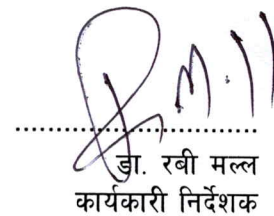 डा. रबी मल्ल
कार्यकारी निर्देशक